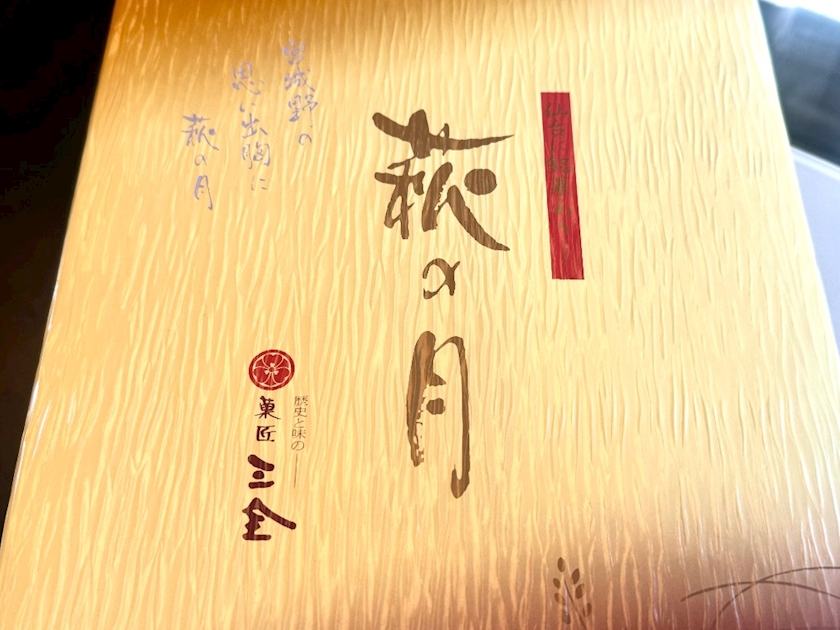 仙台銘菓
萩の月
宮城野の
思い出胸に
萩の月
歴史と味の
菓匠
三全